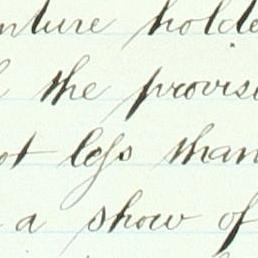 nture holde
the provisi
ot less than
a show of